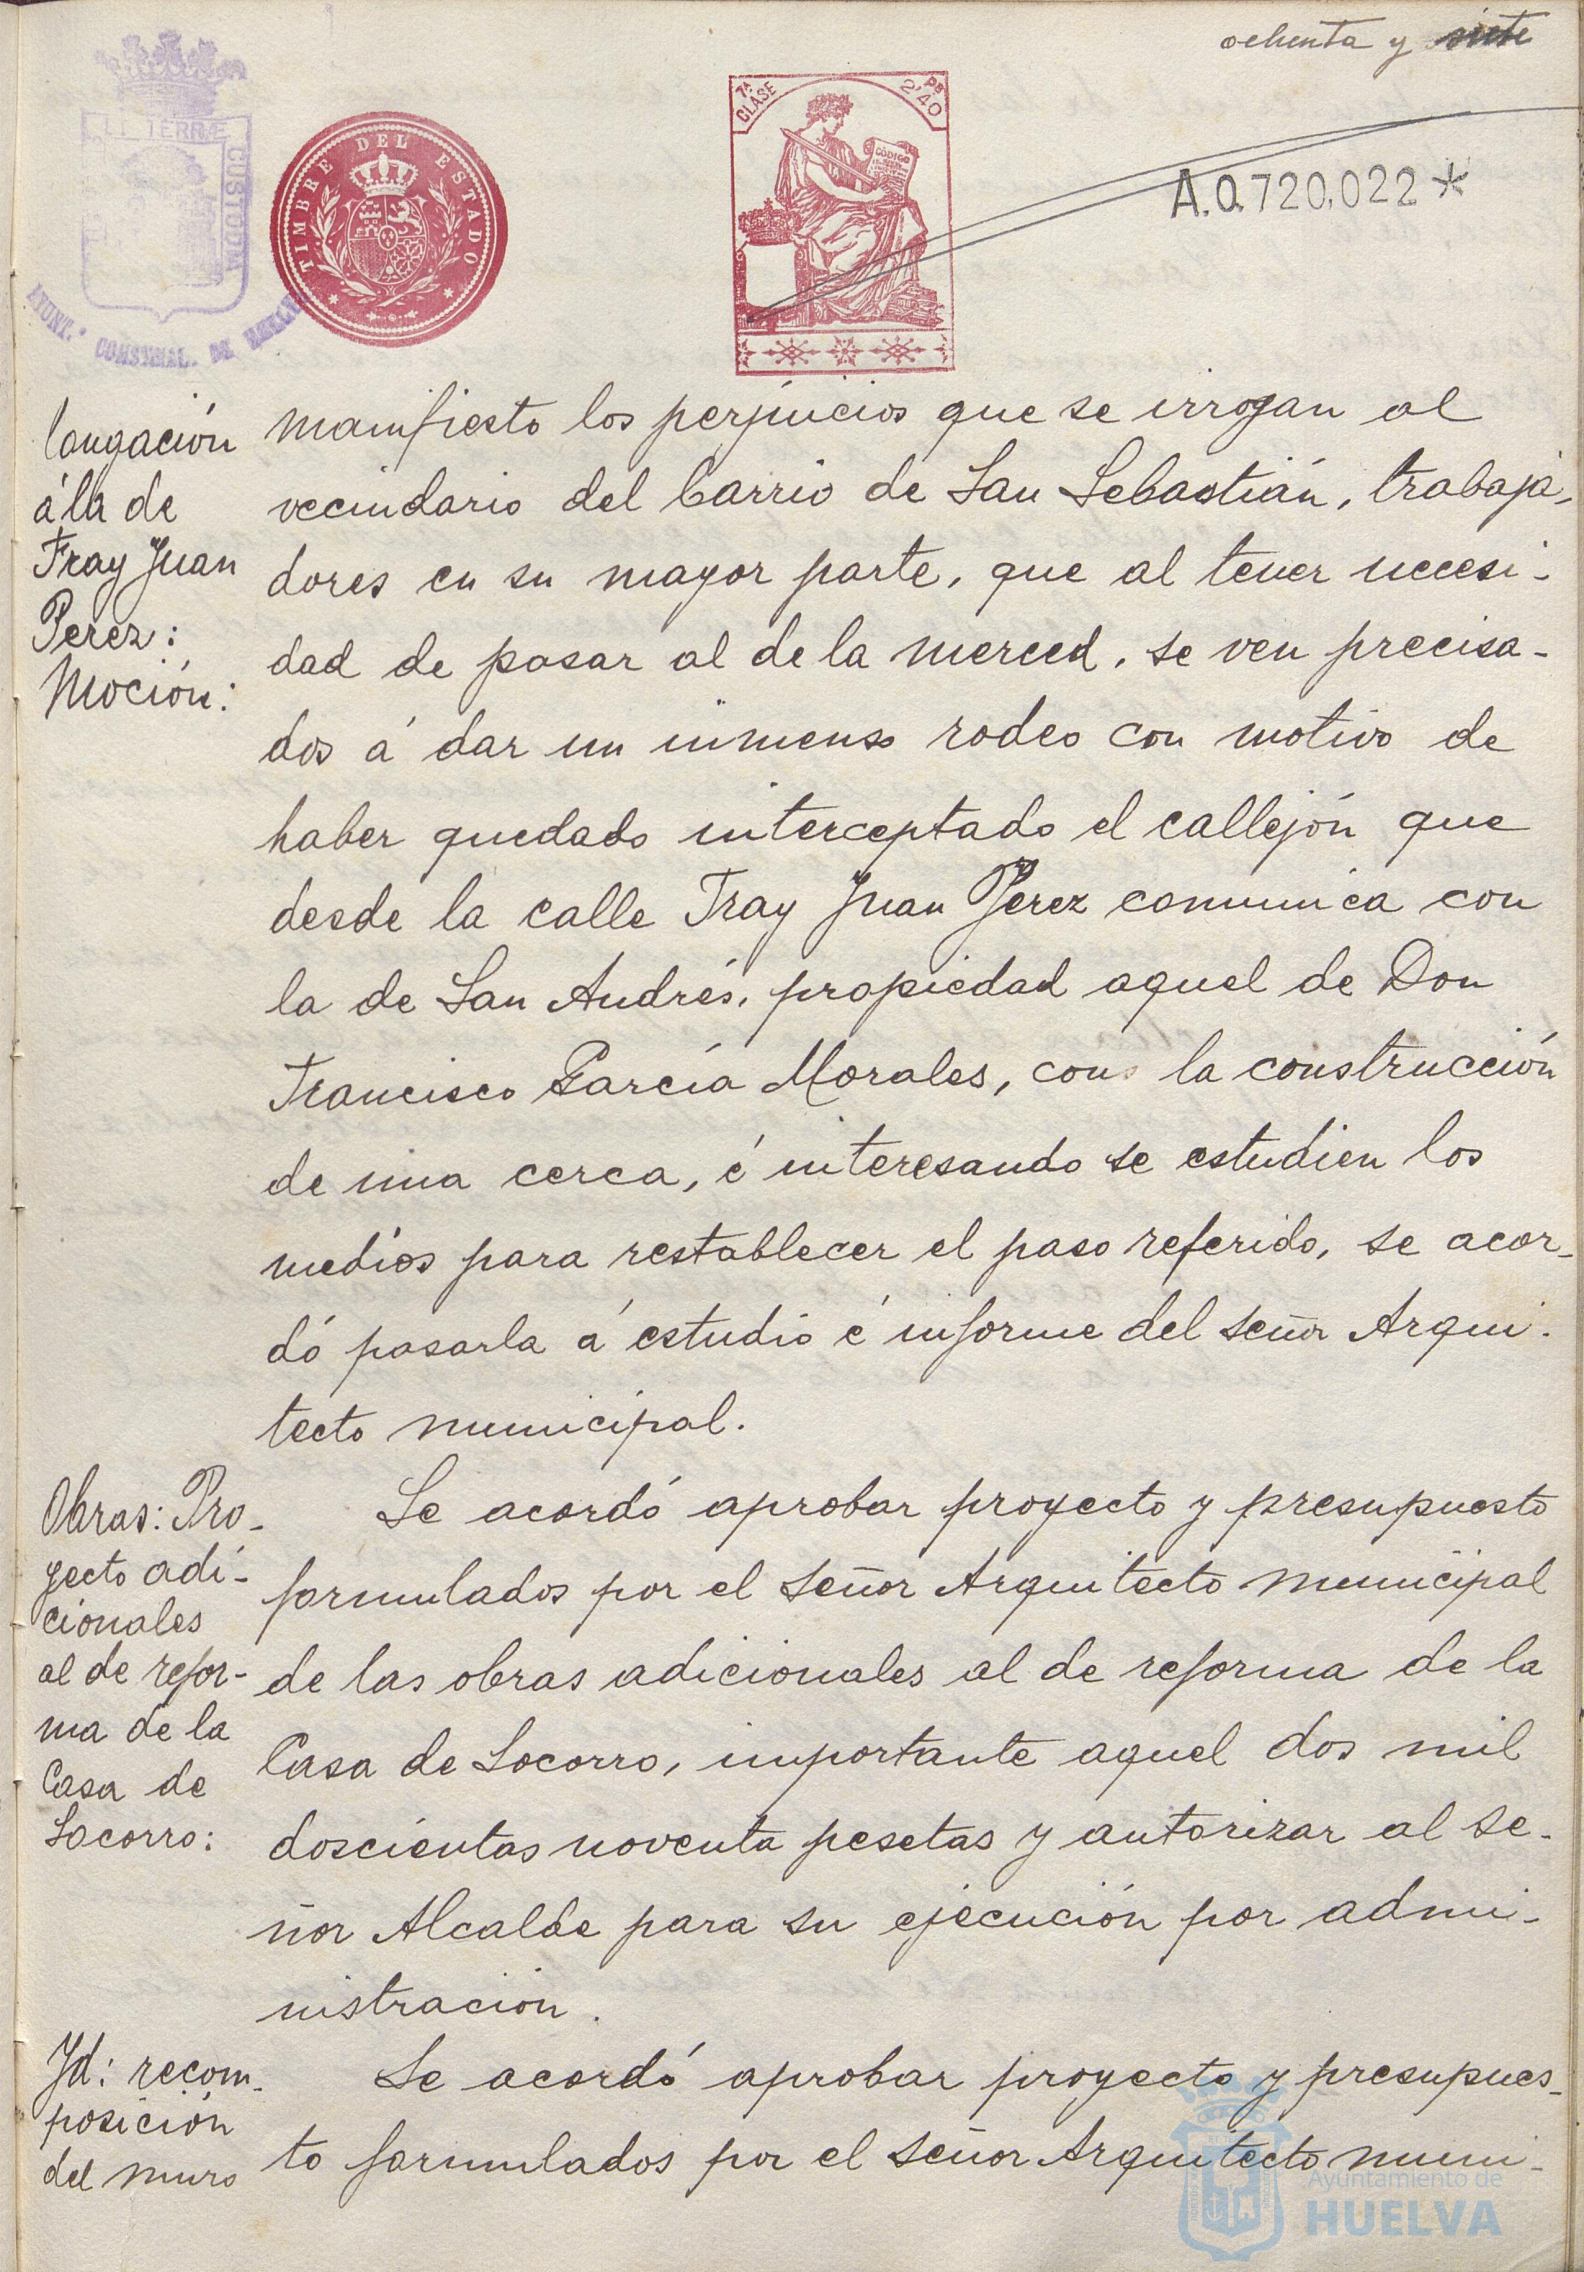 ochenta y siete
LI TERRÆ
CUSTODIA
AYUNT.º CONSTNAL. DE HUELVA
TIMBRE DEL ESTADO
7ª CLASE
PS 2'40
CÓDIGO
A.0.720,022*
longación
á la de
Fray Juan
Perez:
Moción:
manifiesto los perjuicios que se irrogan al
vecindario del barrio de San Sebastián, trabaja-
dores en su mayor parte, que al tener necesi-
dad de pasar al de la Merced, se ven precisa-
dos á dar un inmenso rodeo con motivo de
haber quedado interceptado el callejón que
desde la calle Fray Juan Perez comunica con
la de San Andrés, propiedad aquel de Don
Francisco García Morales, con la construcción
de una cerca, é interesando se estudien los
medios para restablecer el paso referido, se acor-
dó pasarla á estudio é informe del señor Arqui-
tecto municipal.
Obras: Pro-
yecto adi-
cionales
al de refor-
ma de la
Casa de
Socorro:
Se acordó aprobar proyecto y presupuesto
formulados por el señor Arquitecto municipal
de las obras adicionales al de reforma de la
Casa de Socorro, importante aquel dos mil
doscientas noventa pesetas y autorizar al se-
ñor Alcalde para su ejecución por admi-
nistración.
Yd: recom-
posición
del muro
Se acordó aprobar proyecto y presupues-
to formulados por el señor Arquitecto muni-
Ayuntamiento de
HUELVA